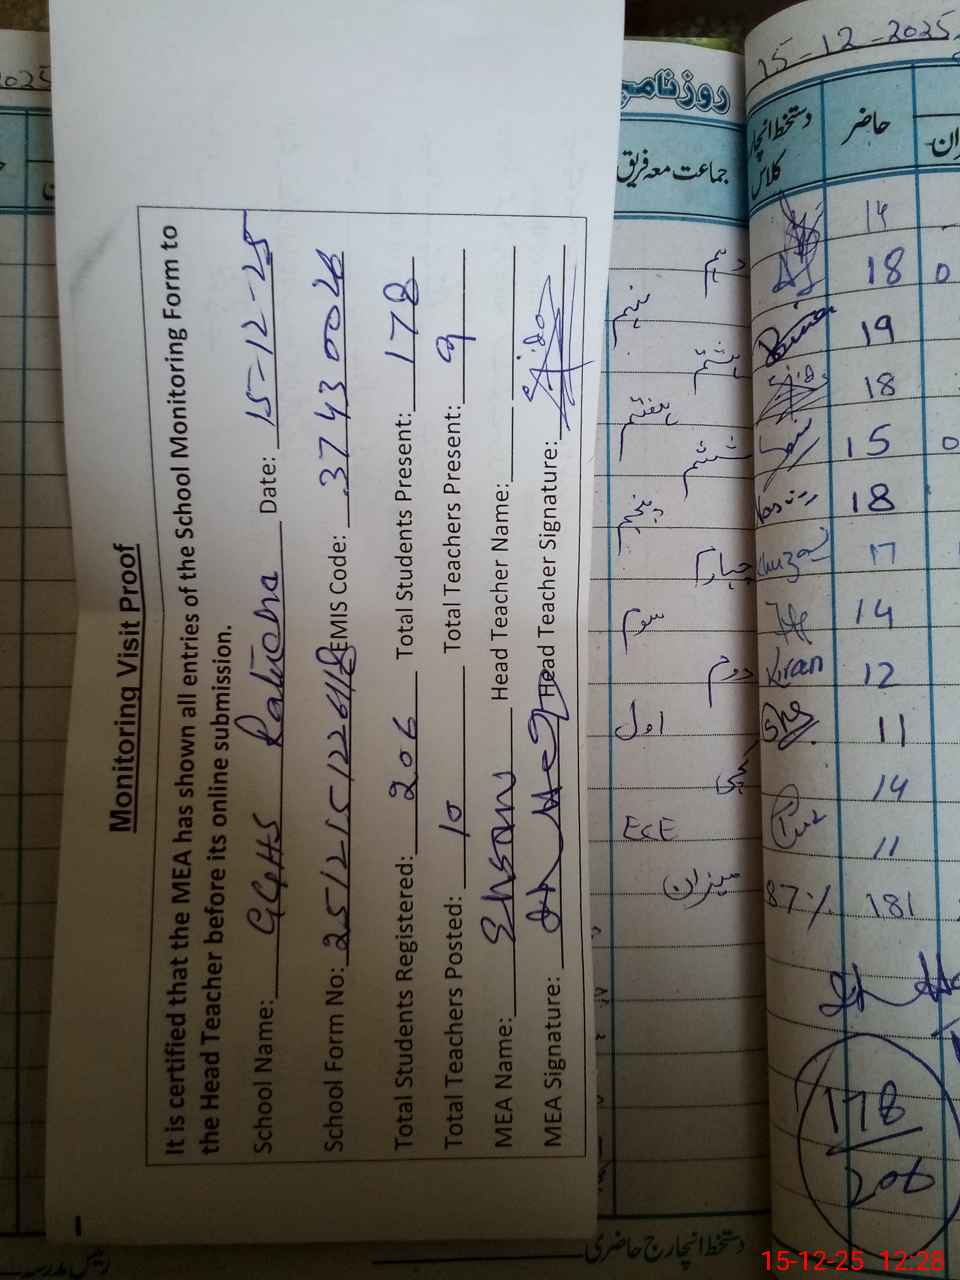 Monitoring Visit Proof
It is certified that the MEA has shown all entries of the School Monitoring Form to
the Head Teacher before its online submission.
School Name: GGHS Date: 15-12-25
School Form No: EMIS Code: 37430026
Total Students Registered: 206 Total Students Present: 178
Total Teachers Posted: 10 Total Teachers Present: 9
MEA Name: Ehsan Head Teacher Name:
MEA Signature: Head Teacher Signature:
2025
15-12-2025
روزنامچہ
جماعت معہ فریق
دستخط انچارج کلاس
حاضر
دہم 14
نہم 18 0
ہشتم 19
ہفتم 18
ششم 15 0
پنجم 18
چہارم 17
سوم 14
دوم Kiran 12
اول 11
کچی 14
ECE 11
میزان 87% 181
178
206
دستخط انچارج حاضری
رئیس مدرسہ
15-12-25 12:28